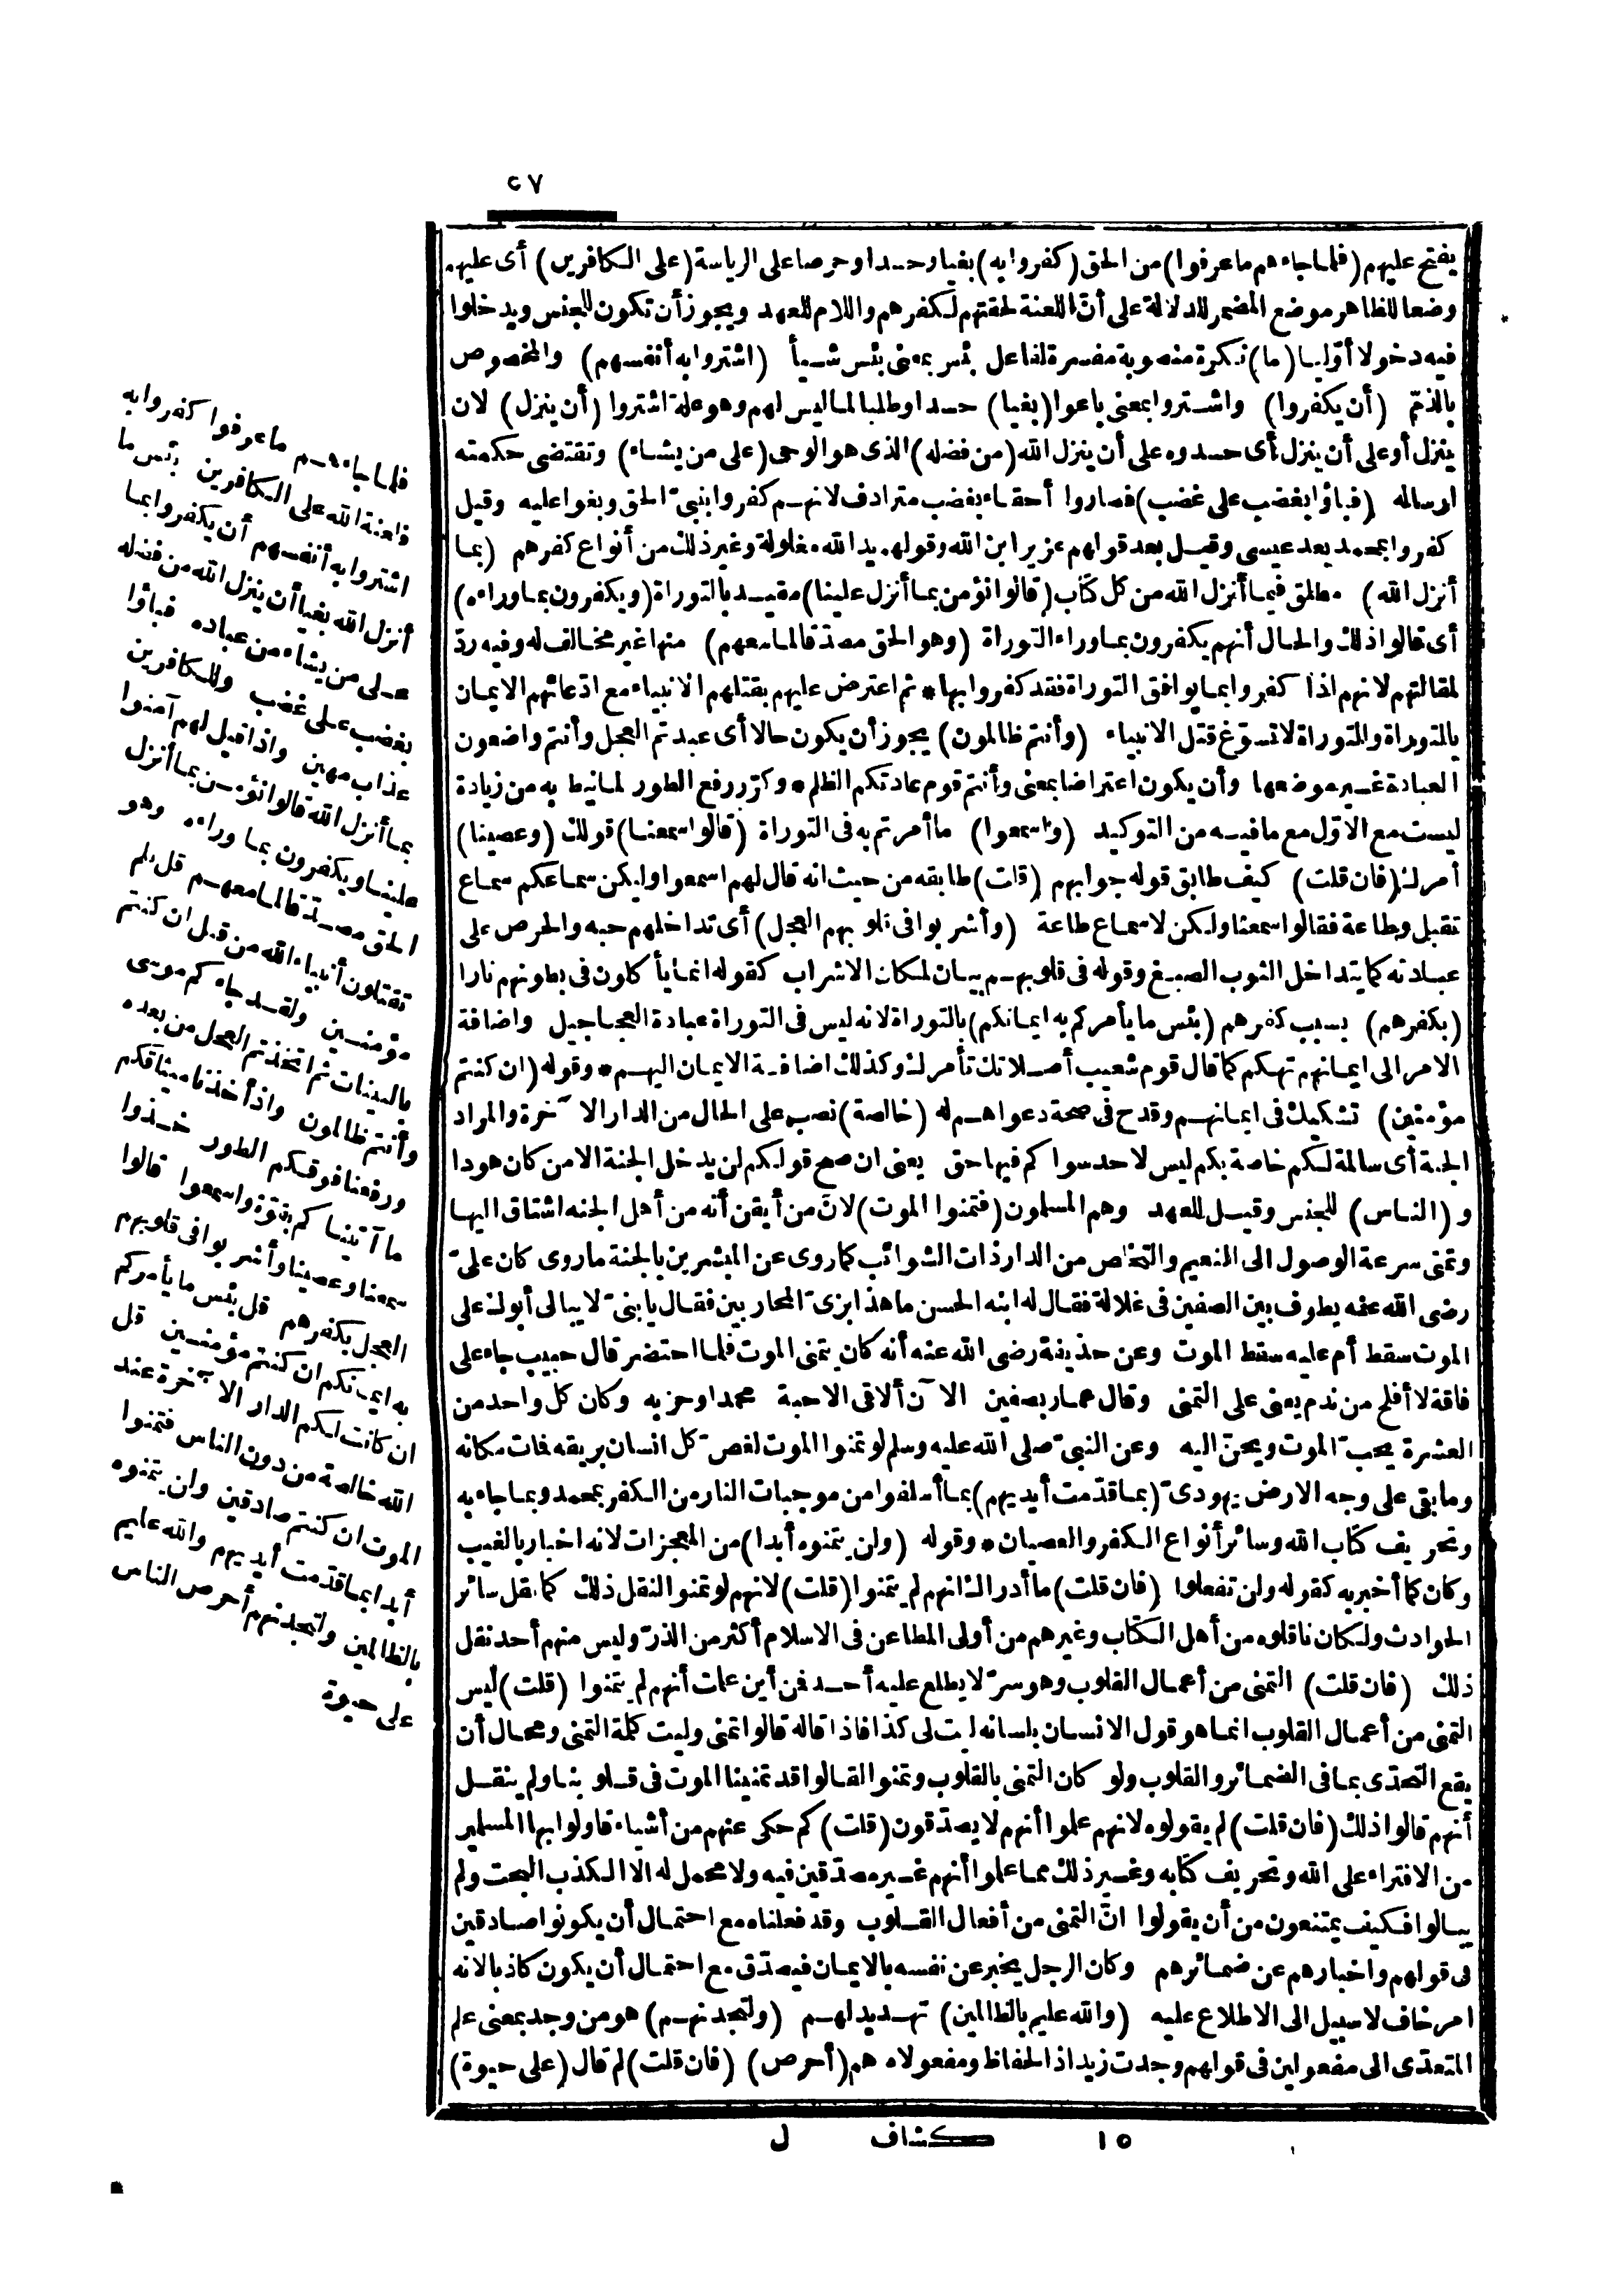 ٢٧
يفتح عليهم (فلما جاءهم ما عرفوا) من الحق (كفروا به) بغيا وحسدا وحرصا على الرياسة (على الكافرين) أى عليهم
وضعا للظاهر موضع المضمر للدلالة على أنّ اللعنة لحقتهم لكفرهم واللام للعهد ويجوز أن تكون للجنس ويدخلوا
فيه دخولا أوّليا (ما) نكرة منصوبة مفسرة لفاعل بئس بمعنى بئس شيأ (اشتروا به أنفسهم) والمخصوص
بالذمّ (أن يكفروا) واشتروا بمعنى باعوا (بغيا) حسدا وطلبا لما ليس لهم وهو علة اشتروا (أن ينزل) لان
ينزل أو على أن ينزل أى حسدوه على أن ينزل الله (من فضله) الذى هو الوحى (على من يشاء) وتقتضى حكمته
ارساله (فباؤا بغضب على غضب) فصاروا أحقاء بغضب مترادف لانهم كفروا بنبىّ الحق وبغوا عليه وقيل
كفروا بمحمد بعد عيسى وقيل بعد قولهم عزير ابن الله وقولهم يد الله مغلولة وغير ذلك من أنواع كفرهم (بما
أنزل الله) مطلق فيما أنزل الله من كل كتاب (قالوا نؤمن بما أنزل علينا) مقيد بالتوراة (ويكفرون بما وراءه)
أى قالوا ذلك والحال أنهم يكفرون بما وراء التوراة (وهو الحق مصدّقا لما معهم) منها غير مخالف له وفيه ردّ
لمقالتهم لانهم اذا كفروا بما يوافق التوراة فقد كفروا بها * ثم اعترض عليهم بقتلهم الانبياء مع ادّعائهم الايمان
بالتوراة والتوراة لا تسوّغ قتل الانبياء (وأنتم ظالمون) يجوز أن يكون حالا أى عبدتم العجل وأنتم واضعون
العبادة غير موضعها وأن يكون اعتراضا بمعنى وأنتم قوم عادتكم الظلم * وكرّر رفع الطور لما نيط به من زيادة
ليست مع الاوّل مع ما فيه من التوكيد (واسمعوا) ما أمرتم به فى التوراة (قالوا سمعنا) قولك (وعصينا)
أمرك (فان قلت) كيف طابق قوله جوابهم (قلت) طابقه من حيث انه قال لهم اسمعوا وليكن سماعكم سماع
تقبل وطاعة فقالوا سمعنا ولكن لا سماع طاعة (وأشربوا فى قلوبهم العجل) أى تداخلهم حبه والحرص على
عبادته كما يتداخل الثوب الصبغ وقوله فى قلوبهم بيان لمكان الاشراب كقوله انما يأكلون فى بطونهم نارا
(بكفرهم) بسبب كفرهم (بئس ما يأمركم به ايمانكم) بالتوراة لانه ليس فى التوراة عبادة العجاجيل واضافة
الامر الى ايمانهم تهكم كما قال قوم شعيب أصلاتك تأمرك وكذلك اضافة الايمان اليهم * وقوله (ان كنتم
مؤمنين) تشكيك فى ايمانهم وقدح فى صحة دعواهم له (خالصة) نصب على الحال من الدار الآخرة والمراد
الجنة أى سالمة لكم خاصة بكم ليس لاحد سواكم فيها حق يعنى ان صح قولكم لن يدخل الجنة الا من كان هودا
و (الناس) للجنس وقيل للعهد وهم المسلمون (فتمنوا الموت) لانّ من أيقن أنه من أهل الجنه اشتاق اليها
وتمنى سرعة الوصول الى النعيم والتخلص من الدار ذات الشوائب كما روى عن المبشرين بالجنة ما روى كان علىّ
رضى الله عنه يطوف بين الصفين فى غلالة فقال له ابنه الحسن ما هذا بزىّ المحاربين فقال يا بنىّ لا يبالى أبوك على
الموت سقط أم عليه سقط الموت وعن حذيفة رضى الله عنه أنه كان يتمنى الموت فلما احتضر قال حبيب جاء على
فاقة لا أفلح من ندم يعنى على التمنى وقال عمار بصفين الآن ألاقى الاحبة محمدا وحزبه وكان كل واحد من
العشرة يحبّ الموت ويحنّ اليه وعن النبىّ صلى الله عليه وسلم لو تمنوا الموت لغصّ كل انسان بريقه فمات مكانه
وما بقى على وجه الارض يهودىّ (بما قدّمت أيديهم) بما أسلفوا من موجبات النار من الكفر بمحمد وبما جاء به
وتحريف كتاب الله وسائر أنواع الكفر والعصيان * وقوله (ولن يتمنوه أبدا) من المعجزات لانه اخبار بالغيب
وكان كما أخبر به كقوله ولن تفعلوا (فان قلت) ما أدراك انهم لم يتمنوا (قلت) لانهم لو تمنوا لنقل ذلك كما نقل سائر
الحوادث ولكان ناقلوه من أهل الكتاب وغيرهم من أولى المطاعن فى الاسلام أكثر من الذرّ وليس منهم أحد نقل
ذلك (فان قلت) التمنى من أعمال القلوب وهو سرّ لا يطلع عليه أحد فمن أين علمت أنهم لم يتمنوا (قلت) ليس
التمنى من أعمال القلوب انما هو قول الانسان بلسانه ليت لى كذا فاذا قاله قالوا تمنى وليت كلمة التمنى ومحال أن
يقع التحدّى بما فى الضمائر والقلوب ولو كان التمنى بالقلوب وتمنوا لقالوا قد تمنينا الموت فى قلوبنا ولم ينقل
أنهم قالوا ذلك (فان قلت) لم يقولوه لانهم علموا أنهم لا يصدّقون (قلت) كم حكى عنهم من أشياء قاولوا بها المسلمين
من الافتراء على الله وتحريف كتابه وغير ذلك مما علموا أنهم غير مصدّقين فيه ولا محمل له الا الكذب البحت ولم
يبالوا فكيف يمتنعون من أن يقولوا انّ التمنى من أفعال القلوب وقد فعلناه مع احتمال أن يكونوا صادقين
فى قولهم واخبارهم عن ضمائرهم وكان الرجل يخبر عن نفسه بالايمان فيصدّق مع احتمال أن يكون كاذبا لانه
امر خاف لا سبيل الى الاطلاع عليه (والله عليم بالظالمين) تهديد لهم (ولتجدنهم) هو من وجد بمعنى علم
المتعدّى الى مفعولين فى قولهم وجدت زيدا ذا الحفاظ ومفعولاه هم (أحرص) (فان قلت) لم قال (على حيوة)
فلما جاءهم ما عرفوا كفروا به
فلعنة الله على الكافرين بئس ما
اشتروا به أنفسهم أن يكفروا بما
أنزل الله بغيا أن ينزل الله من فضله
على من يشاء من عباده فباؤا
بغضب على غضب وللكافرين
عذاب مهين واذا قيل لهم آمنوا
بما أنزل الله قالوا نؤمن بما أنزل
علينا ويكفرون بما وراءه وهو
الحق مصدّقا لما معهم قل فلم
تقتلون أنبياء الله من قبل ان كنتم
مؤمنين ولقد جاءكم موسى
بالبينات ثم اتخذتم العجل من بعده
وأنتم ظالمون واذ أخذنا ميثاقكم
ورفعنا فوقكم الطور خذوا
ما آتيناكم بقوّة واسمعوا قالوا
سمعنا وعصينا وأشربوا فى قلوبهم
العجل بكفرهم قل بئس ما يأمركم
به ايمانكم ان كنتم مؤمنين قل
ان كانت لكم الدار الآخرة عند
الله خالصة من دون الناس فتمنوا
الموت ان كنتم صادقين ولن يتمنوه
أبدا بما قدّمت أيديهم والله عليم
بالظالمين ولتجدنهم أحرص الناس
على حيوة
١٥ كشاف ل